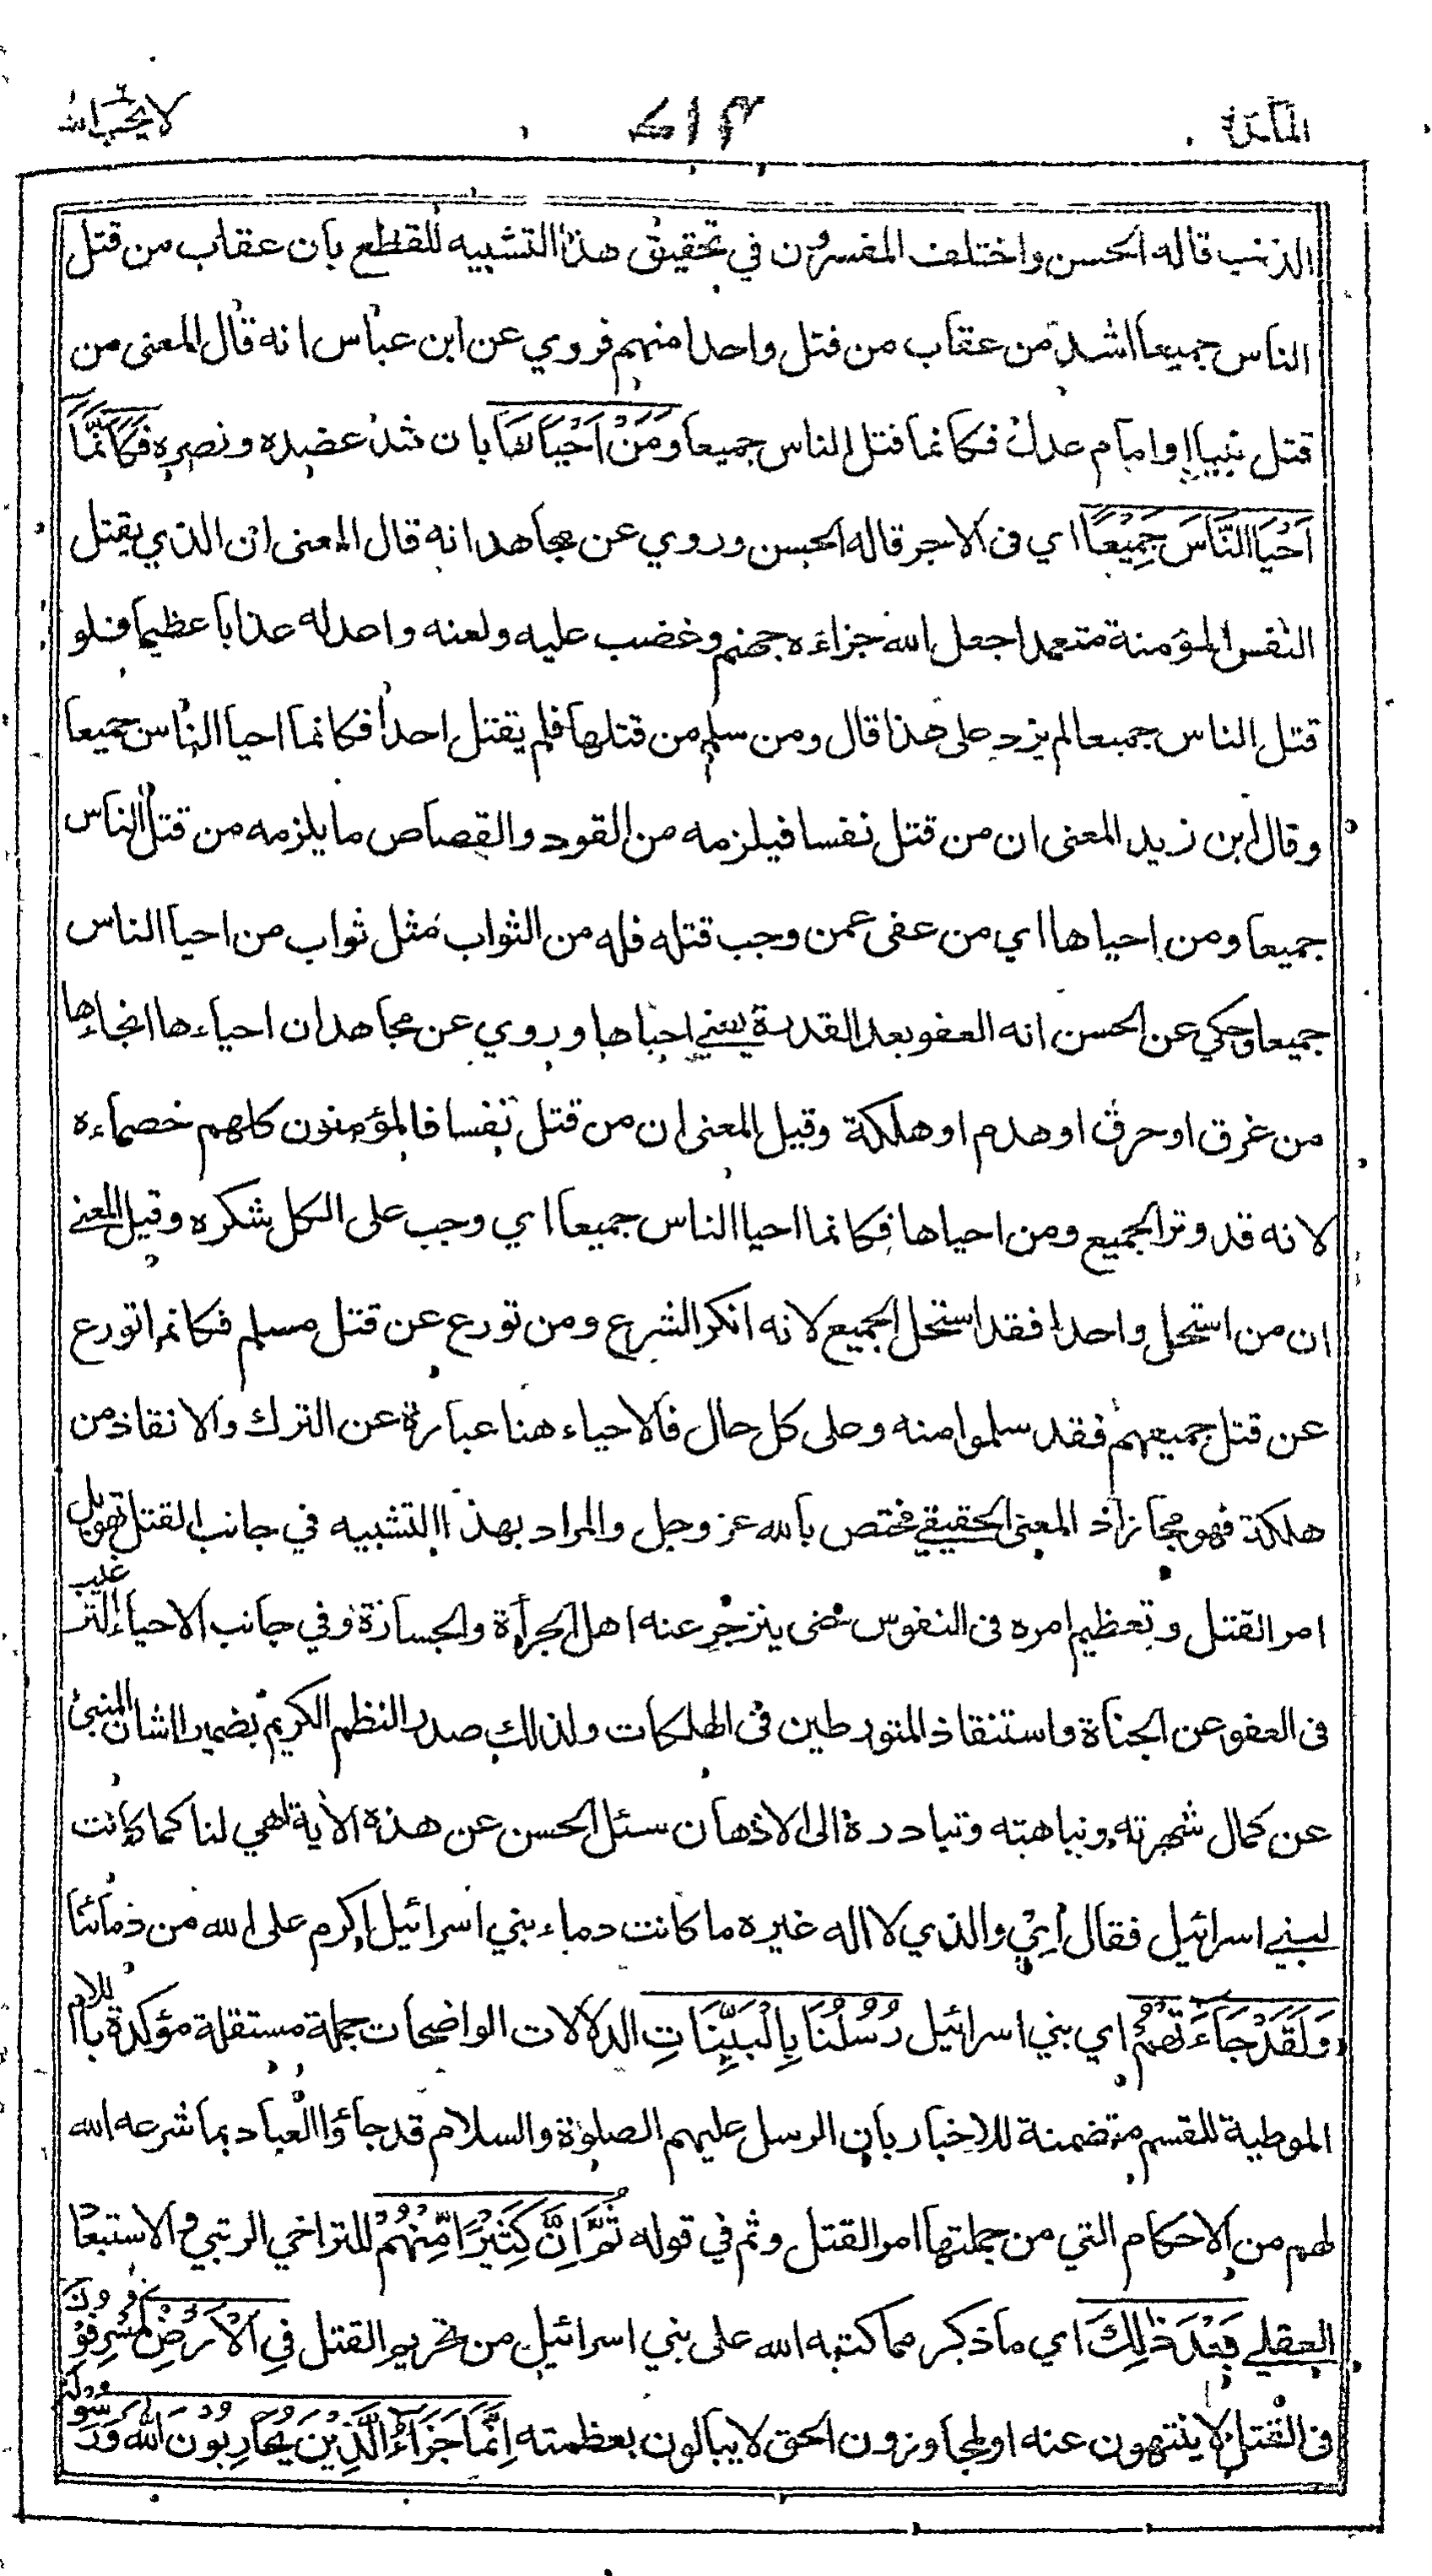 المائدة ٦١٣ لا يحب الله
الذنب قاله الحسن واختلف المفسرون في تحقيق هذا التشبيه للقطع بان عقاب من قتل
الناس جميعا اشد من عقاب من قتل واحدا منهم فروي عن ابن عباس انه قال المعنى من
قتل نبيا او امام عدل فكانما قتل الناس جميعا وَمَنْ اَحْيَاهَا بان شد عضده ونصره فَكَاَنَّمَا
اَحْيَا النَّاسَ جَمِيْعًا اي في الاجر قاله الحسن وروي عن مجاهد انه قال المعنى ان الذي يقتل
النفس المؤمنة متعمدا جعل الله جزاءه جهنم وغضب عليه ولعنه واعد له عذابا عظيما فلو
قتل الناس جميعا لم يزد على هذا قال ومن سلم من قتلها فلم يقتل احدا فكانما احيا الناس جميعا
وقال ابن زيد المعنى ان من قتل نفسا فيلزمه من القود والقصاص ما يلزمه من قتل الناس
جميعا ومن احياها اي من عفى عمن وجب قتله فله من الثواب مثل ثواب من احيا الناس
جميعا وحكي عن الحسن انه العفو بعد القدرة يعني احياها وروي عن مجاهد ان احياءها انجاءها
من غرق او حرق او هدم او هلكة وقيل المعنى ان من قتل نفسا فالمؤمنون كلهم خصماءه
لانه قد وتر الجميع ومن احياها فكانما احيا الناس جميعا اي وجب على الكل شكره وقيل المعنى
ان من استحل واحدا فقد استحل الجميع لانه انكر الشرع ومن تورع عن قتل مسلم فكانما تورع
عن قتل جميعهم فقد سلموا منه وعلى كل حال فالاحياء هنا عبارة عن الترك والانقاذ من
هلكة فهو مجاز اذ المعنى الحقيقي مختص بالله عز وجل والمراد بهذا التشبيه في جانب القتل تهويل
امر القتل وتعظيم امره في النفوس حتى ينزجر عنه اهل الجرأة والجسارة وفي جانب الاحياء الترغيب
في العفو عن الجناة واستنقاذ المتورطين في الهلكات ولذلك صدر النظم الكريم بضمير الشان المنبئ
عن كمال شهرته ونباهته وتبادره الى الاذهان سئل الحسن عن هذه الاية اهي لنا كما كانت
لبني اسرائيل فقال اي والذي لا اله غيره ما كانت دماء بني اسرائيل اكرم على الله من دمائنا
وَلَقَدْ جَاءَتْهُمْ اي بني اسرائيل رُسُلُنَا بِالْبَيِّنَاتِ الدلالات الواضحات جملة مستقلة مؤكدة باللام
الموطية للقسم متضمنة للاخبار بان الرسل عليهم الصلوة والسلام قد جاؤا العباد بما شرعه الله
لهم من الاحكام التي من جملتها امر القتل وثم في قوله ثُمَّ اِنَّ كَثِيْرًا مِّنْهُمْ للتراخي الرتبي والاستبعاد
العقلي بَعْدَ ذٰلِكَ اي ما ذكر مما كتبه الله على بني اسرائيل من تحريم القتل فِي الْاَرْضِ لَمُسْرِفُوْنَ
في القتل لا ينتهون عنه او لمجاوزون الحق لا يبالون بعظمته اِنَّمَا جَزَاءُ الَّذِيْنَ يُحَارِبُوْنَ اللّٰهَ وَرَسُوْلَهٗ